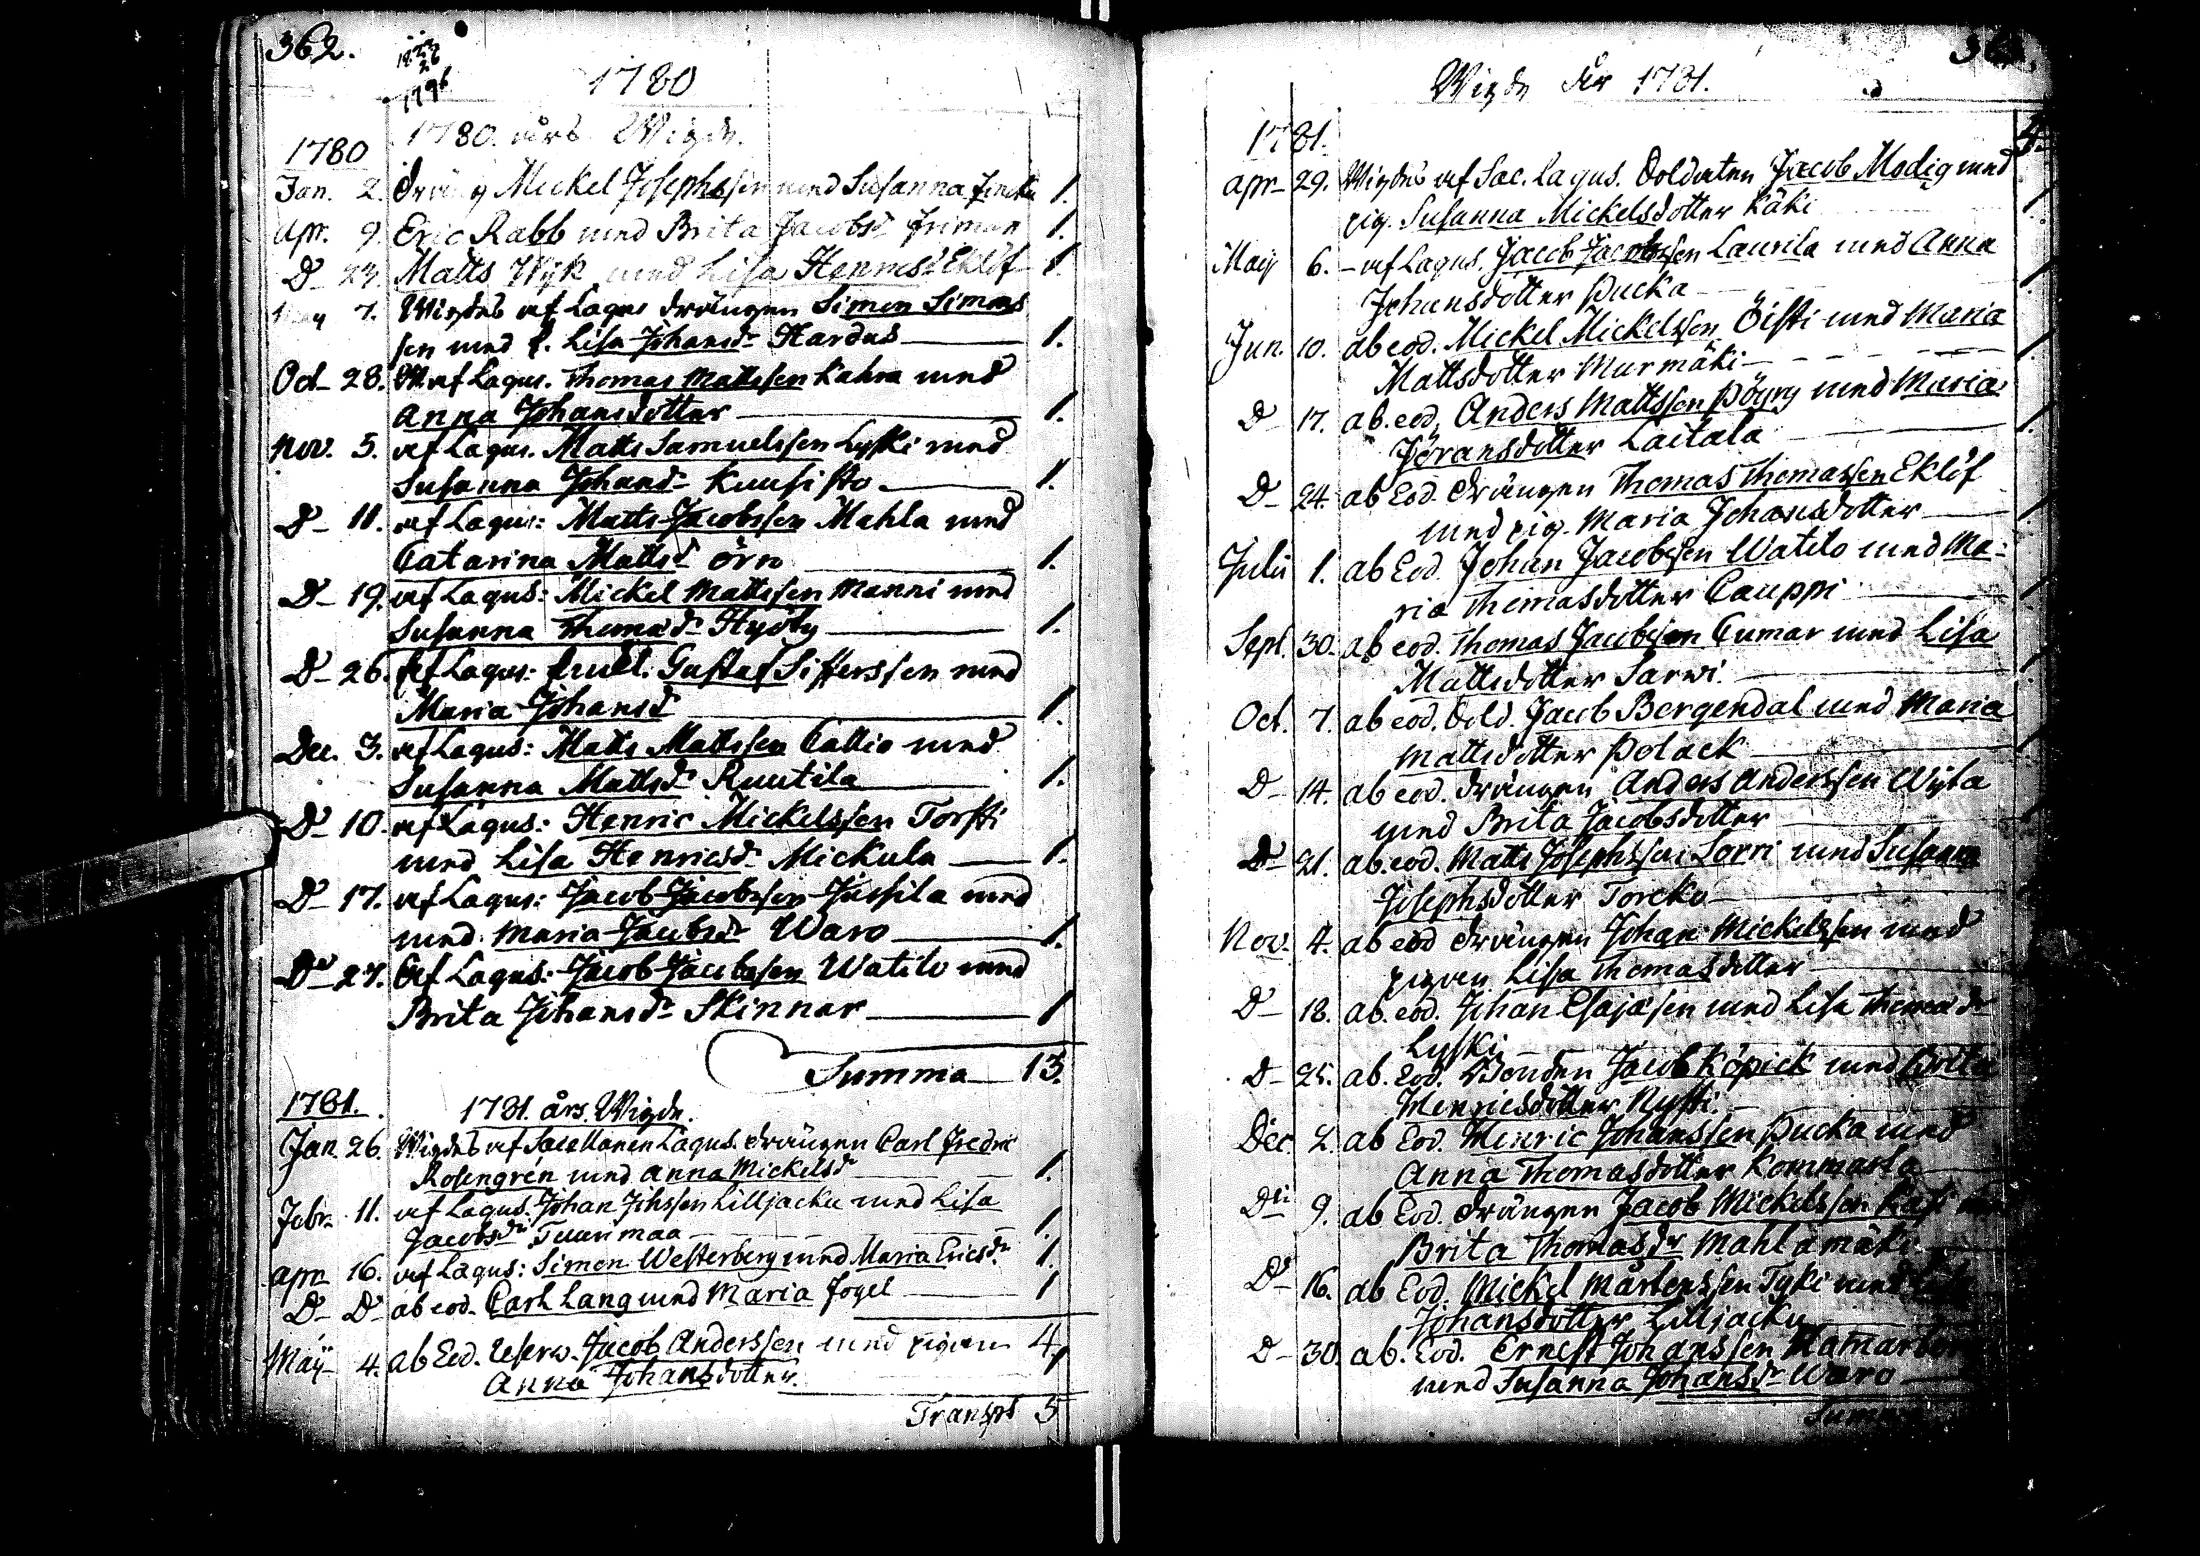 362.
1796
1780
1780. års Wigde.
1780
Jan. 2. dräng Mickel Josephssen med Susanna 1.
Apr. 9. Eric Rabb med Brita Jacobsdr Friman 1.
D- 23. Matts Wyk med Lisa Henricsdr Eklöf 1.
May 7. Wigdes af Lagus drängen Simon Simons
sen med p. Lisa Johansdr Hardus 1.
Oct- 28. W. af Lagus. Thomas Mattssen Kahra med
Anna Johansdotter 1.
Nov. 5. af Lagus. Matts Samuelssen Lyski med
Susanna Johansdr Kuusisto 1.
D- 11. af Lagus: Matts Jacobssen Mahla med
Catarina Mattsdr Örn 1.
D- 19. af Lagus: Mickel Mattssen Manni med
Susanna Thomasdr Hyöty 1.
D- 26. af Lagus: Gustaf Sifferssen med
Maria Johansdr 1.
Dec. 3. af Lagus: Matts Mattssen Callio med
Susanna Mattsdr Ruutila 1.
D- 10. af Lagus: Henric Mickelssen Torsti
med Lisa Henricsdr Mickula 1.
D- 17. af Lagus: Jacob Jacobssen Jussila med
med Maria Jacobsdr Waro 1.
D- 27. af Lagus: Jacob Jacobssen Watilo med
Brita Johansdr Skinnar 1
Summa 13.
1781. 1781. års Wigde.
Jan 26. Wigdes af Sacellanen Lagus drängen Carl Fredric
Rosengrén med Anna Mickelsdr 1.
Febr. 11. af Lagus. Johan Johssen Lilljacku med Lisa
Jacobsdr Tuurimaa 1.
Apr. 16. af Lagus: Simon Westerberg med Maria Ericsdr 1.
D- D- ab eod. Carl Lang med Maria Fogel 1
4.
Maÿ 4. ab Eod. Reserv. Jacob Anderssen med pigan
Anna Johansdotter. 1
Transpt 5
Wigde År 1781.
1781.
Apr- 29. Wigdes af Sac. Lagus. Soldaten Jacob Modig med
pig. Susanna Mickelsdotter Käki 1
Maij 6. - af Lagus. Jacob Jacobssen Laurila med Anna
Johansdotter Pucka 1.
Jun. 10. ab eod. Mickel Mickelssen Öisti med Maria
Mattsdotter Murmäki 1.
D- 17. ab. eod. Anders Mattssen Pöyry med Maria
Jöransdotter Laitala 1.
D- 24. ab Eod. drängen Thomas Thomassen Eklöf
med pig. Maria Johansdotter 1
Julii 1. ab Eod. Johan Jacobssen Watilo med Ma-
ria Thomasdotter Cauppi 1
Sept. 30. ab eod. Thomas Jacobssen Cumar med Lisa
Mattsdotter Sarwi 1
Oct. 7. ab eod. Sold. Jacob Bergendal med Maria
Mattsdotter Polack 1
D- 14. ab eod. drängen Anders Anderssen Wyta
med Brita Jacobsdotter 1
D- 21. ab. eod. Matts Josephssen Sorri med Susanna
Josephsdotter Torcko
Nov. 4. ab eod drängen Johan Mickelssen med
pigan Lisa Thomasdotter
D- 18. ab. eod. Johan Esajäsen med Lisa Thomasdr
Lyski
D- 25. ab. Eod. Bonden Jacob Köpick med Brita
Henricsdotter Rysti.
Dec. 2. ab Eod. Henric Johanssen Pucka med
Anna Thomasdotter Kommarla
Dn 9. ab Eod. drängen Jacob Mickelssen
Brita Thomasdr Mahlamäki
D- 16. ab Eod. Mickel Mårtenssen Tyki med
Johansdotter Lilljacku
D- 30. ab. Eod. Ernest Johanssen
med Susanna Johansdr Waro
Summa